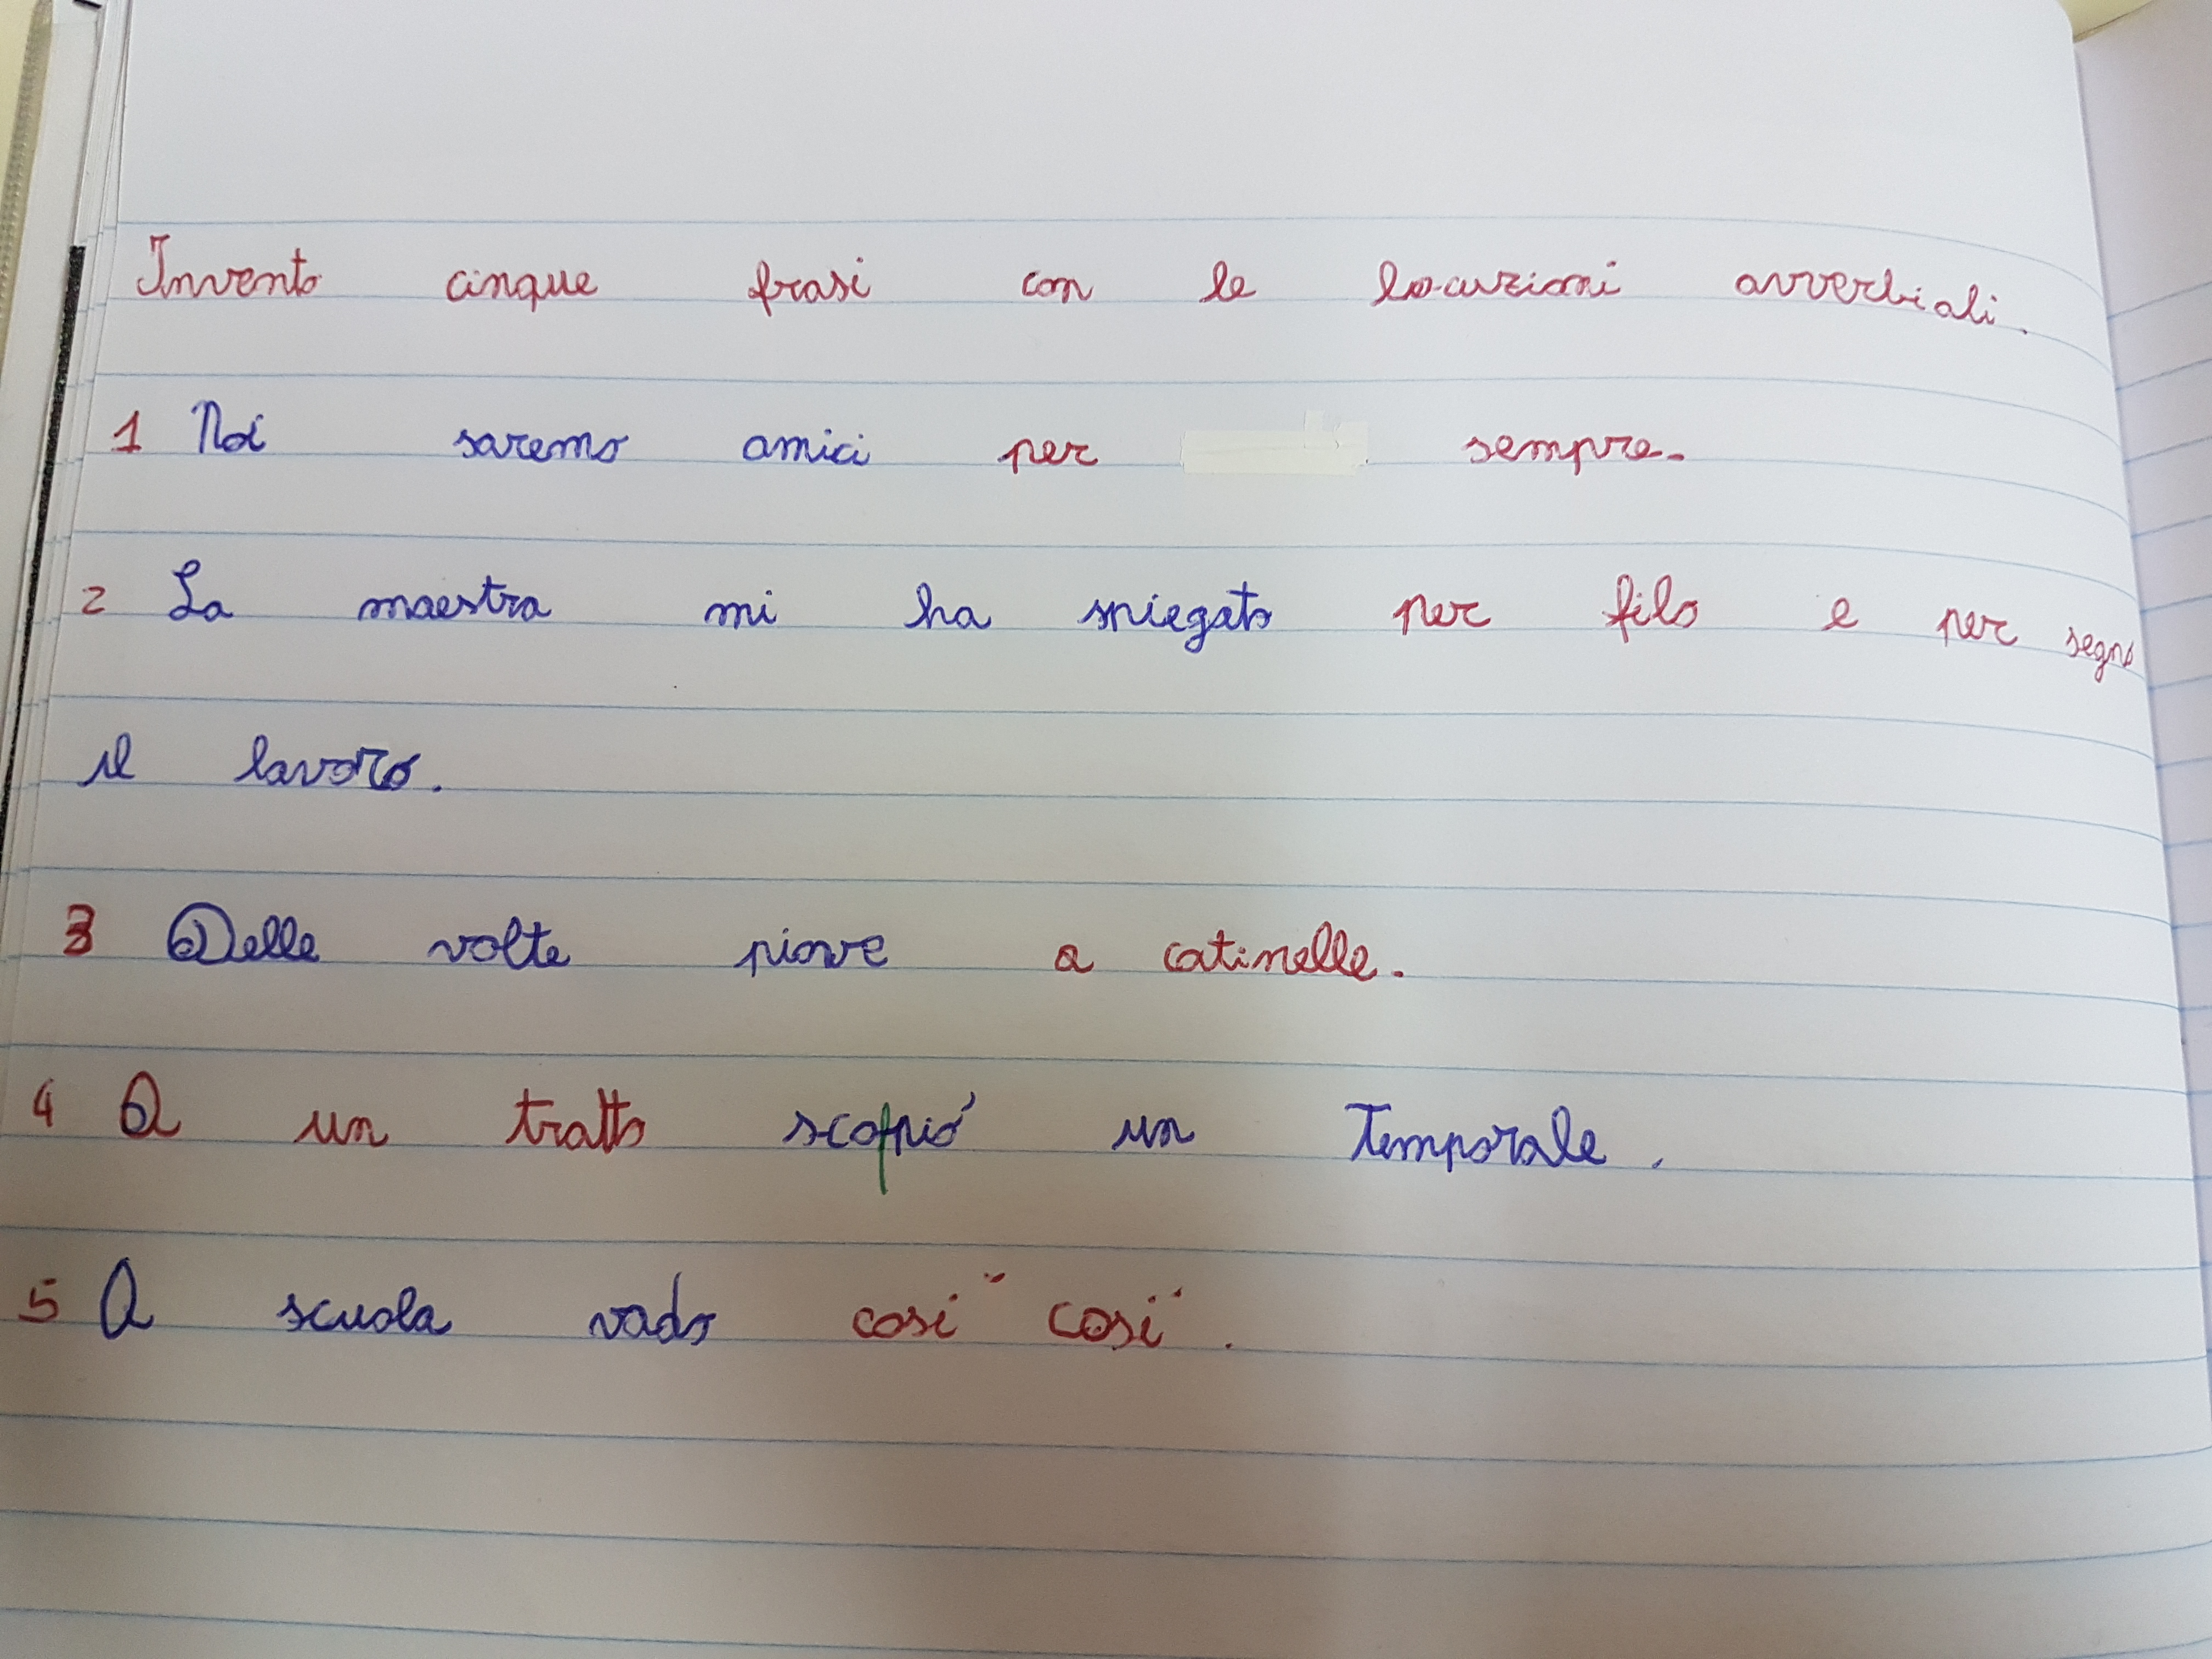 Invento cinque frasi con le locuzioni avverbiali.
1 Noi saremo amici per sempre.
2 La maestra mi ha spiegato per filo e per segno
il lavoro.
3 Delle volte piove a catinelle.
4 A un tratto scoppió un Temporale.
5 A scuola vado cosí cosí.